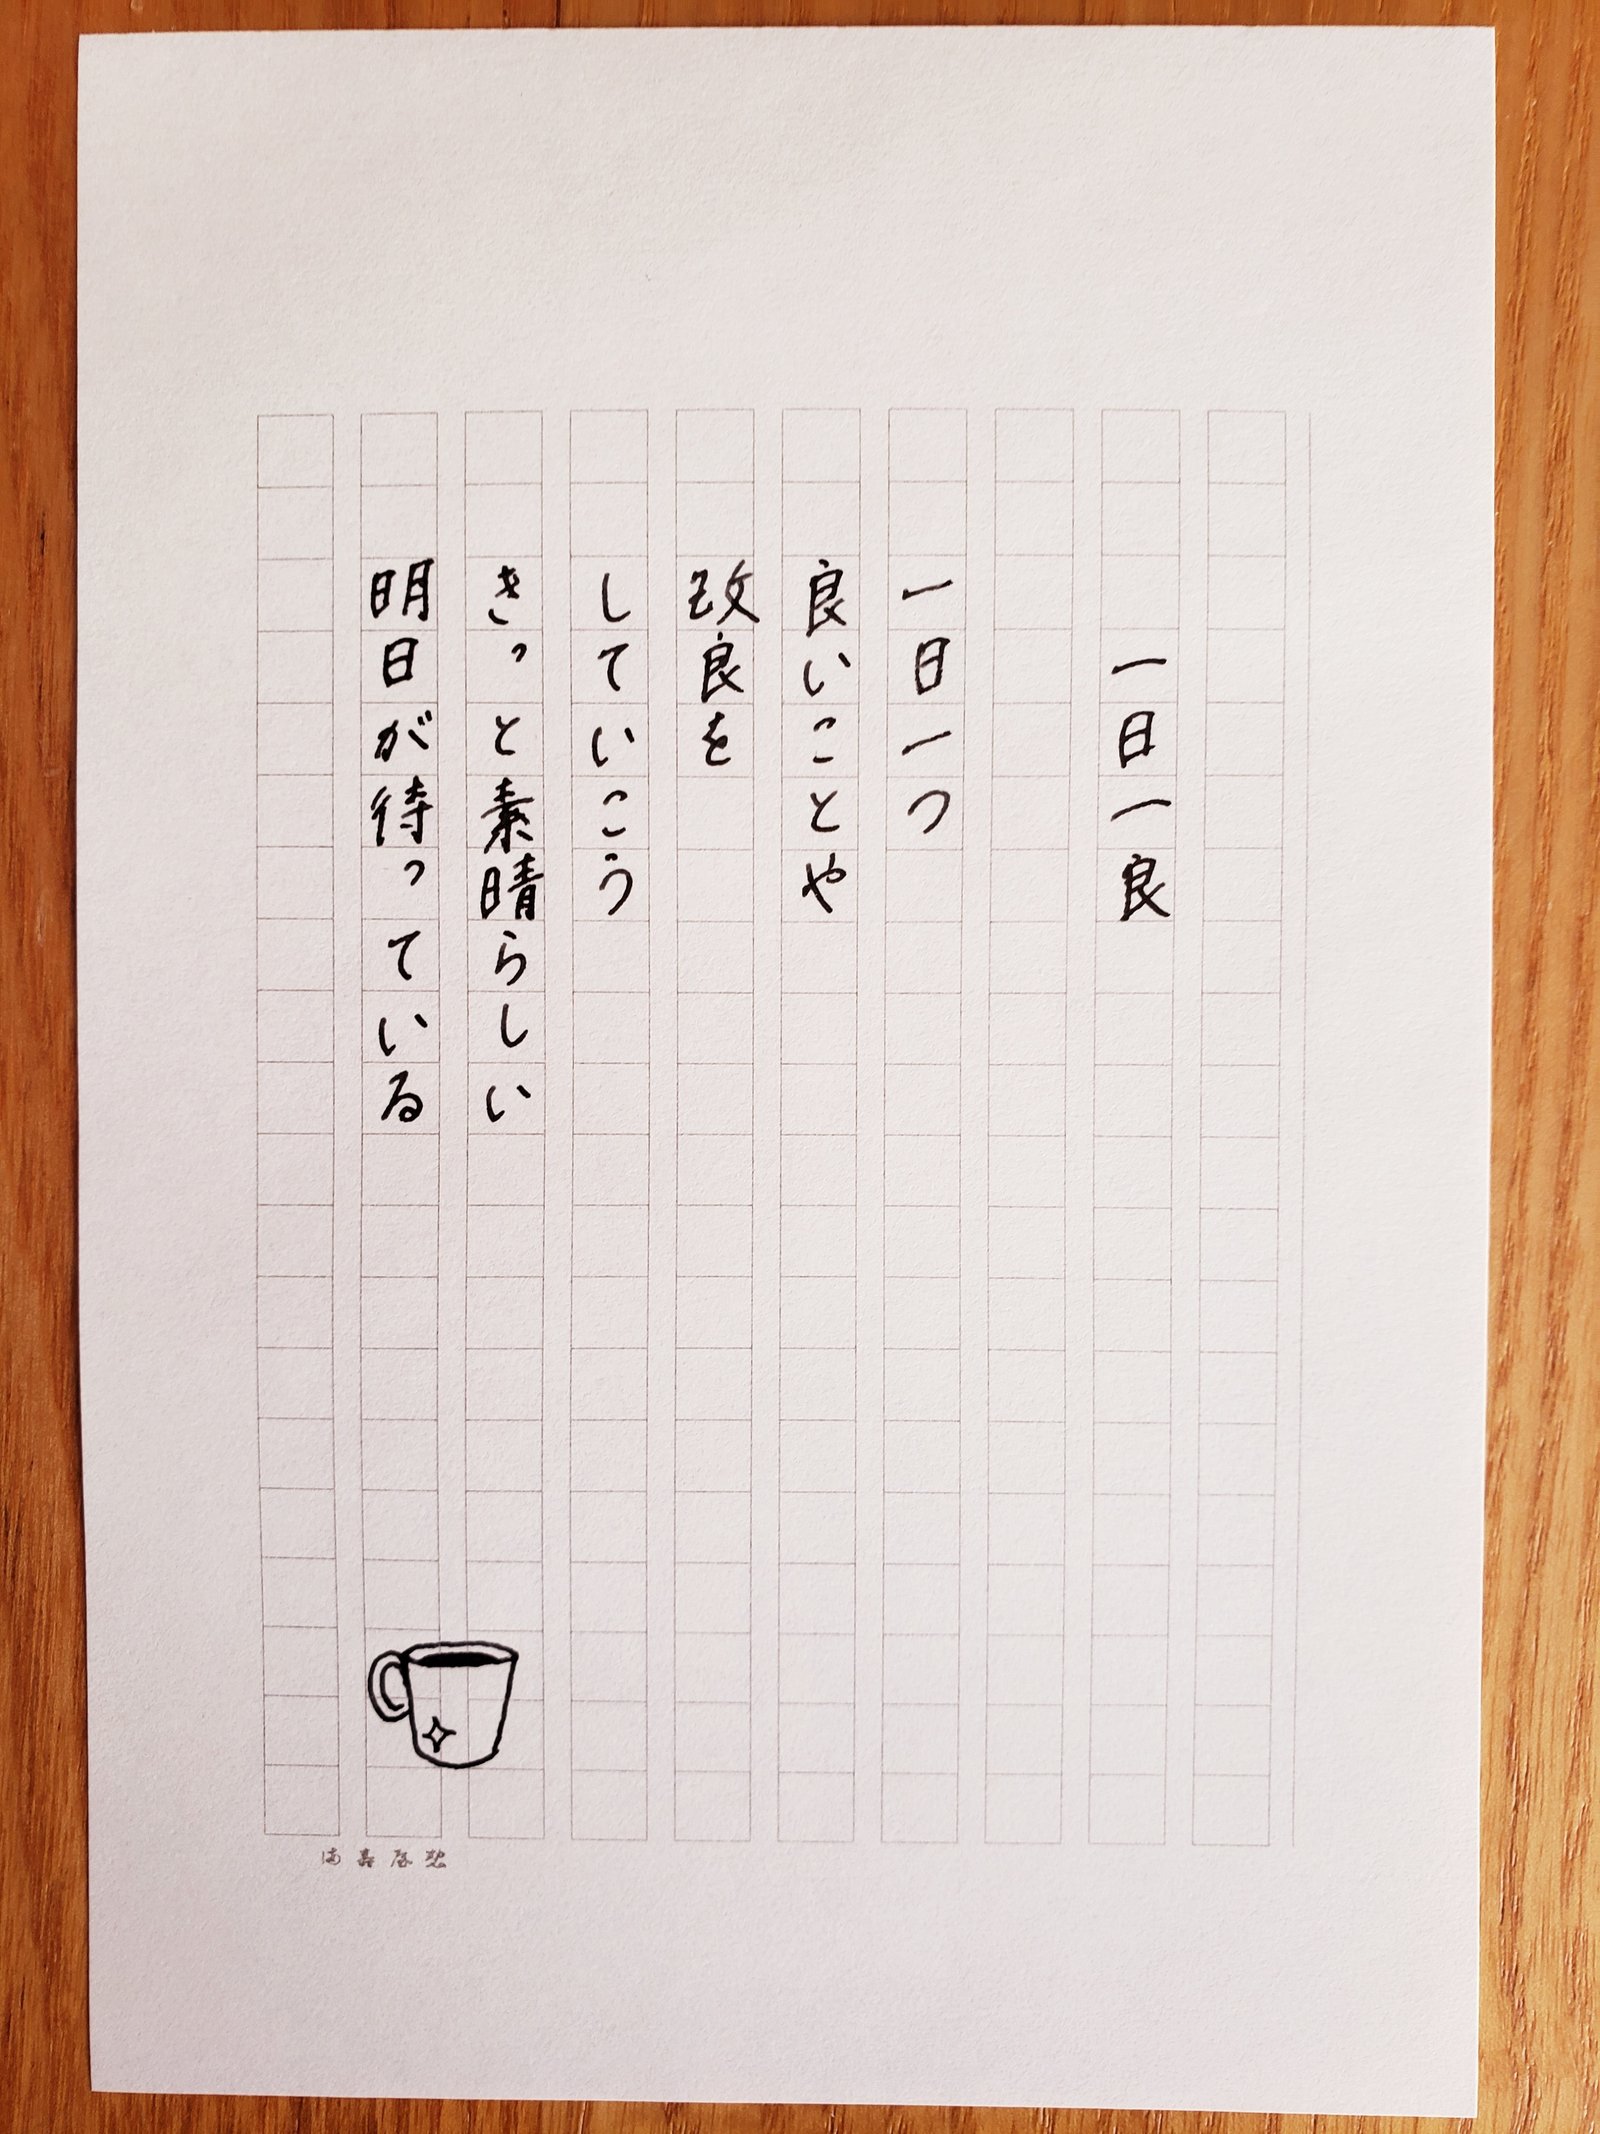 一日一良
一日一つ
良いことや
改良を
していこう
きっと素晴らしい
明日が待っている